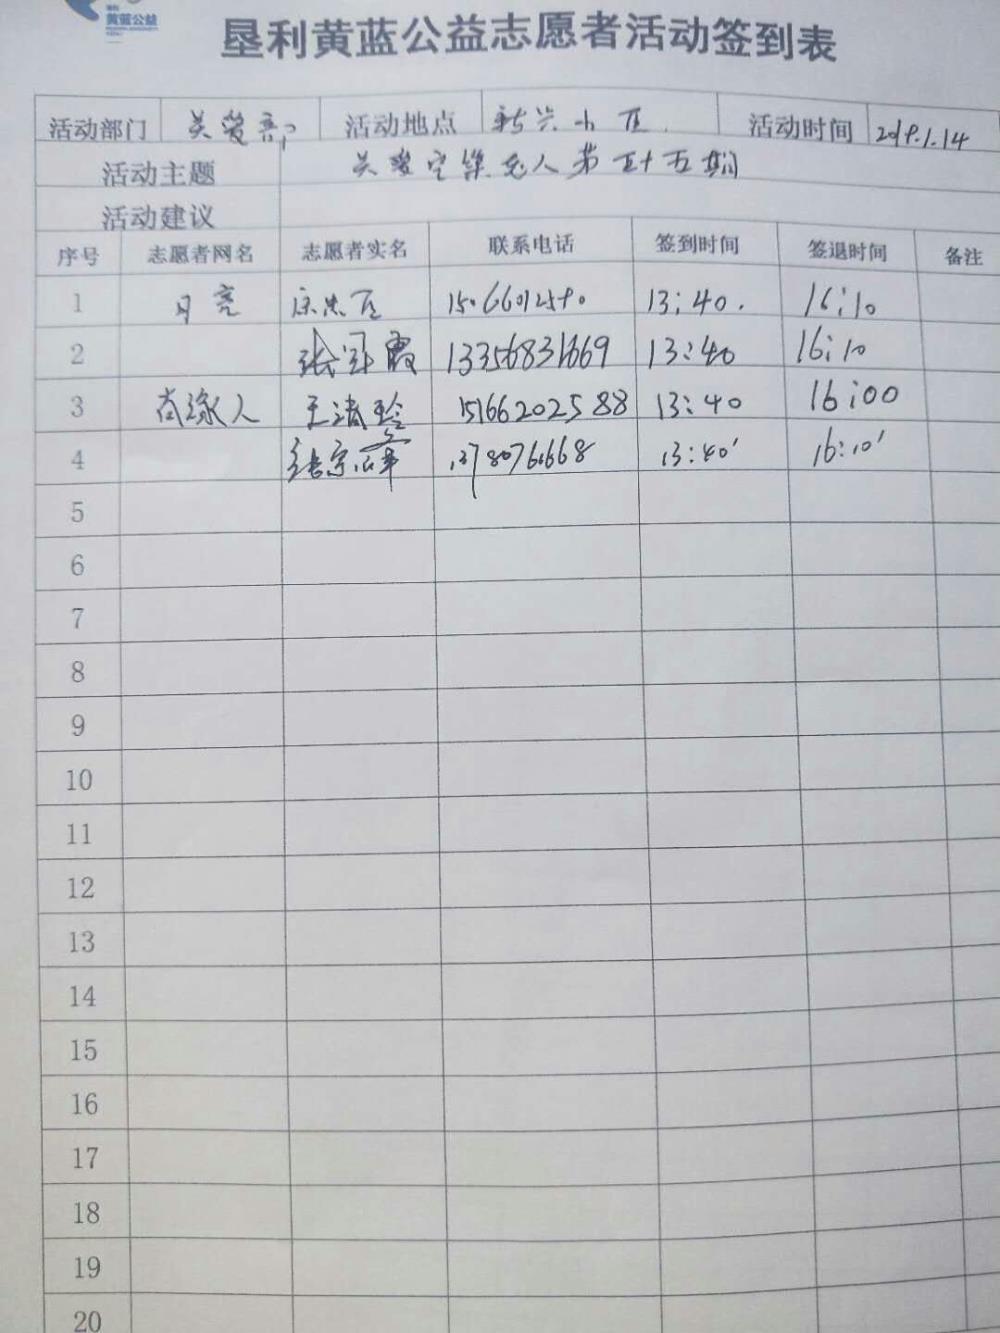 黄蓝公益
垦利黄蓝公益志愿者活动签到表
活动部门 关爱部 活动地点 新兴小区 活动时间 2019.1.14
活动主题 关爱空巢老人第五十五期
活动建议
序号 志愿者网名 志愿者实名 联系电话 签到时间 签退时间 备注
1 月亮 13:40. 16:10
2 张 霞 13356831669 13:40 16:10
3 王清玲 15166202588 13:40 16:00
4 13780761668 13:40' 16:10'
5
6
7
8
9
10
11
12
13
14
15
16
17
18
19
20